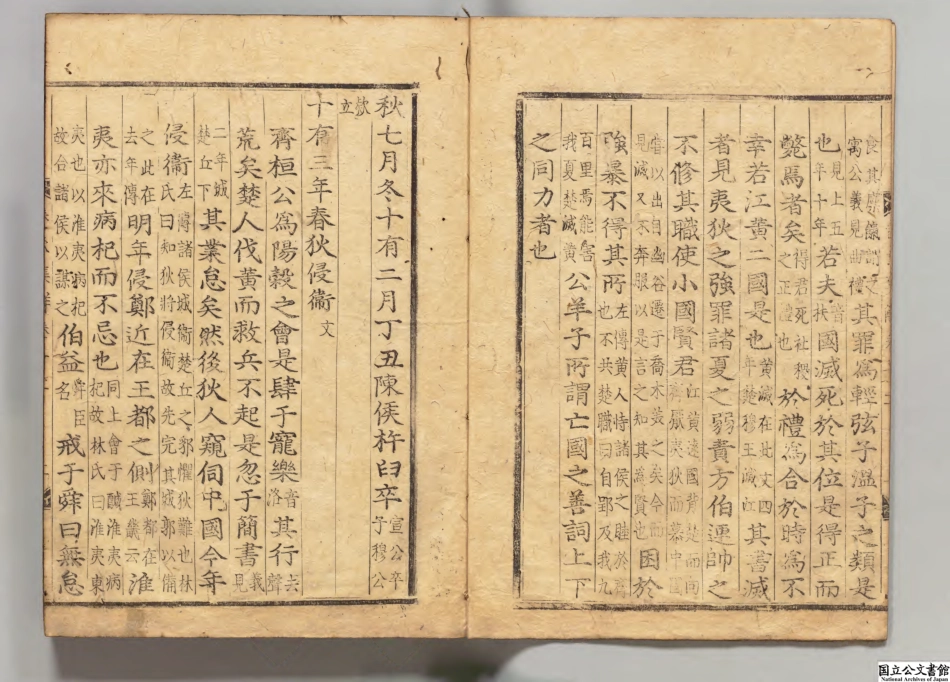 其罪爲輕弦子溫子之類是
也見上五年十年若夫音扶國滅死於其位是得正而
斃焉者矣得君死社稷之正禮也於禮爲合於時爲不
幸若江黃二國是也黃滅在此文四年楚穆王滅江其書滅
者見夷狄之強罪諸夏之弱責方伯連帥之
不修其職使小國賢君江黃遠國背楚而向齊厭夷狄而慕中國
以出自幽谷遷于喬木美之矣今而見滅又不奔服以是言之知其爲賢也困於
強暴不得其所左傳黃人恃諸侯之睦於齊也不共楚職曰自郢及我九
百里焉能害我夏楚滅黃公羊子所謂亡國之善詞上下
之同力者也
秋七月冬十有二月丁丑陳侯杵臼卒宣公卒子穆公
款立
十有三年春狄侵衞文
齊桓公爲陽穀之會是肆于寵樂音洛其行去聲
荒矣楚人伐黃而救兵不起是忽于簡書義見
二年城楚丘下其業怠矣然後狄人窺伺中國今年
侵衞左傳諸侯城衞楚丘之郛懼狄難也林氏曰知狄將侵衞故先完其城郭以備
之此在去年傳明年侵鄭近在王都之側鄭都在王畿云淮
夷亦來病杞而不忌也同上會于鹹淮夷病杞故林氏曰淮夷東
夷也以淮夷病杞故合諸侯以謀之伯益舜臣名戒于舜曰無怠
国立公文書館
National Archives of Japan